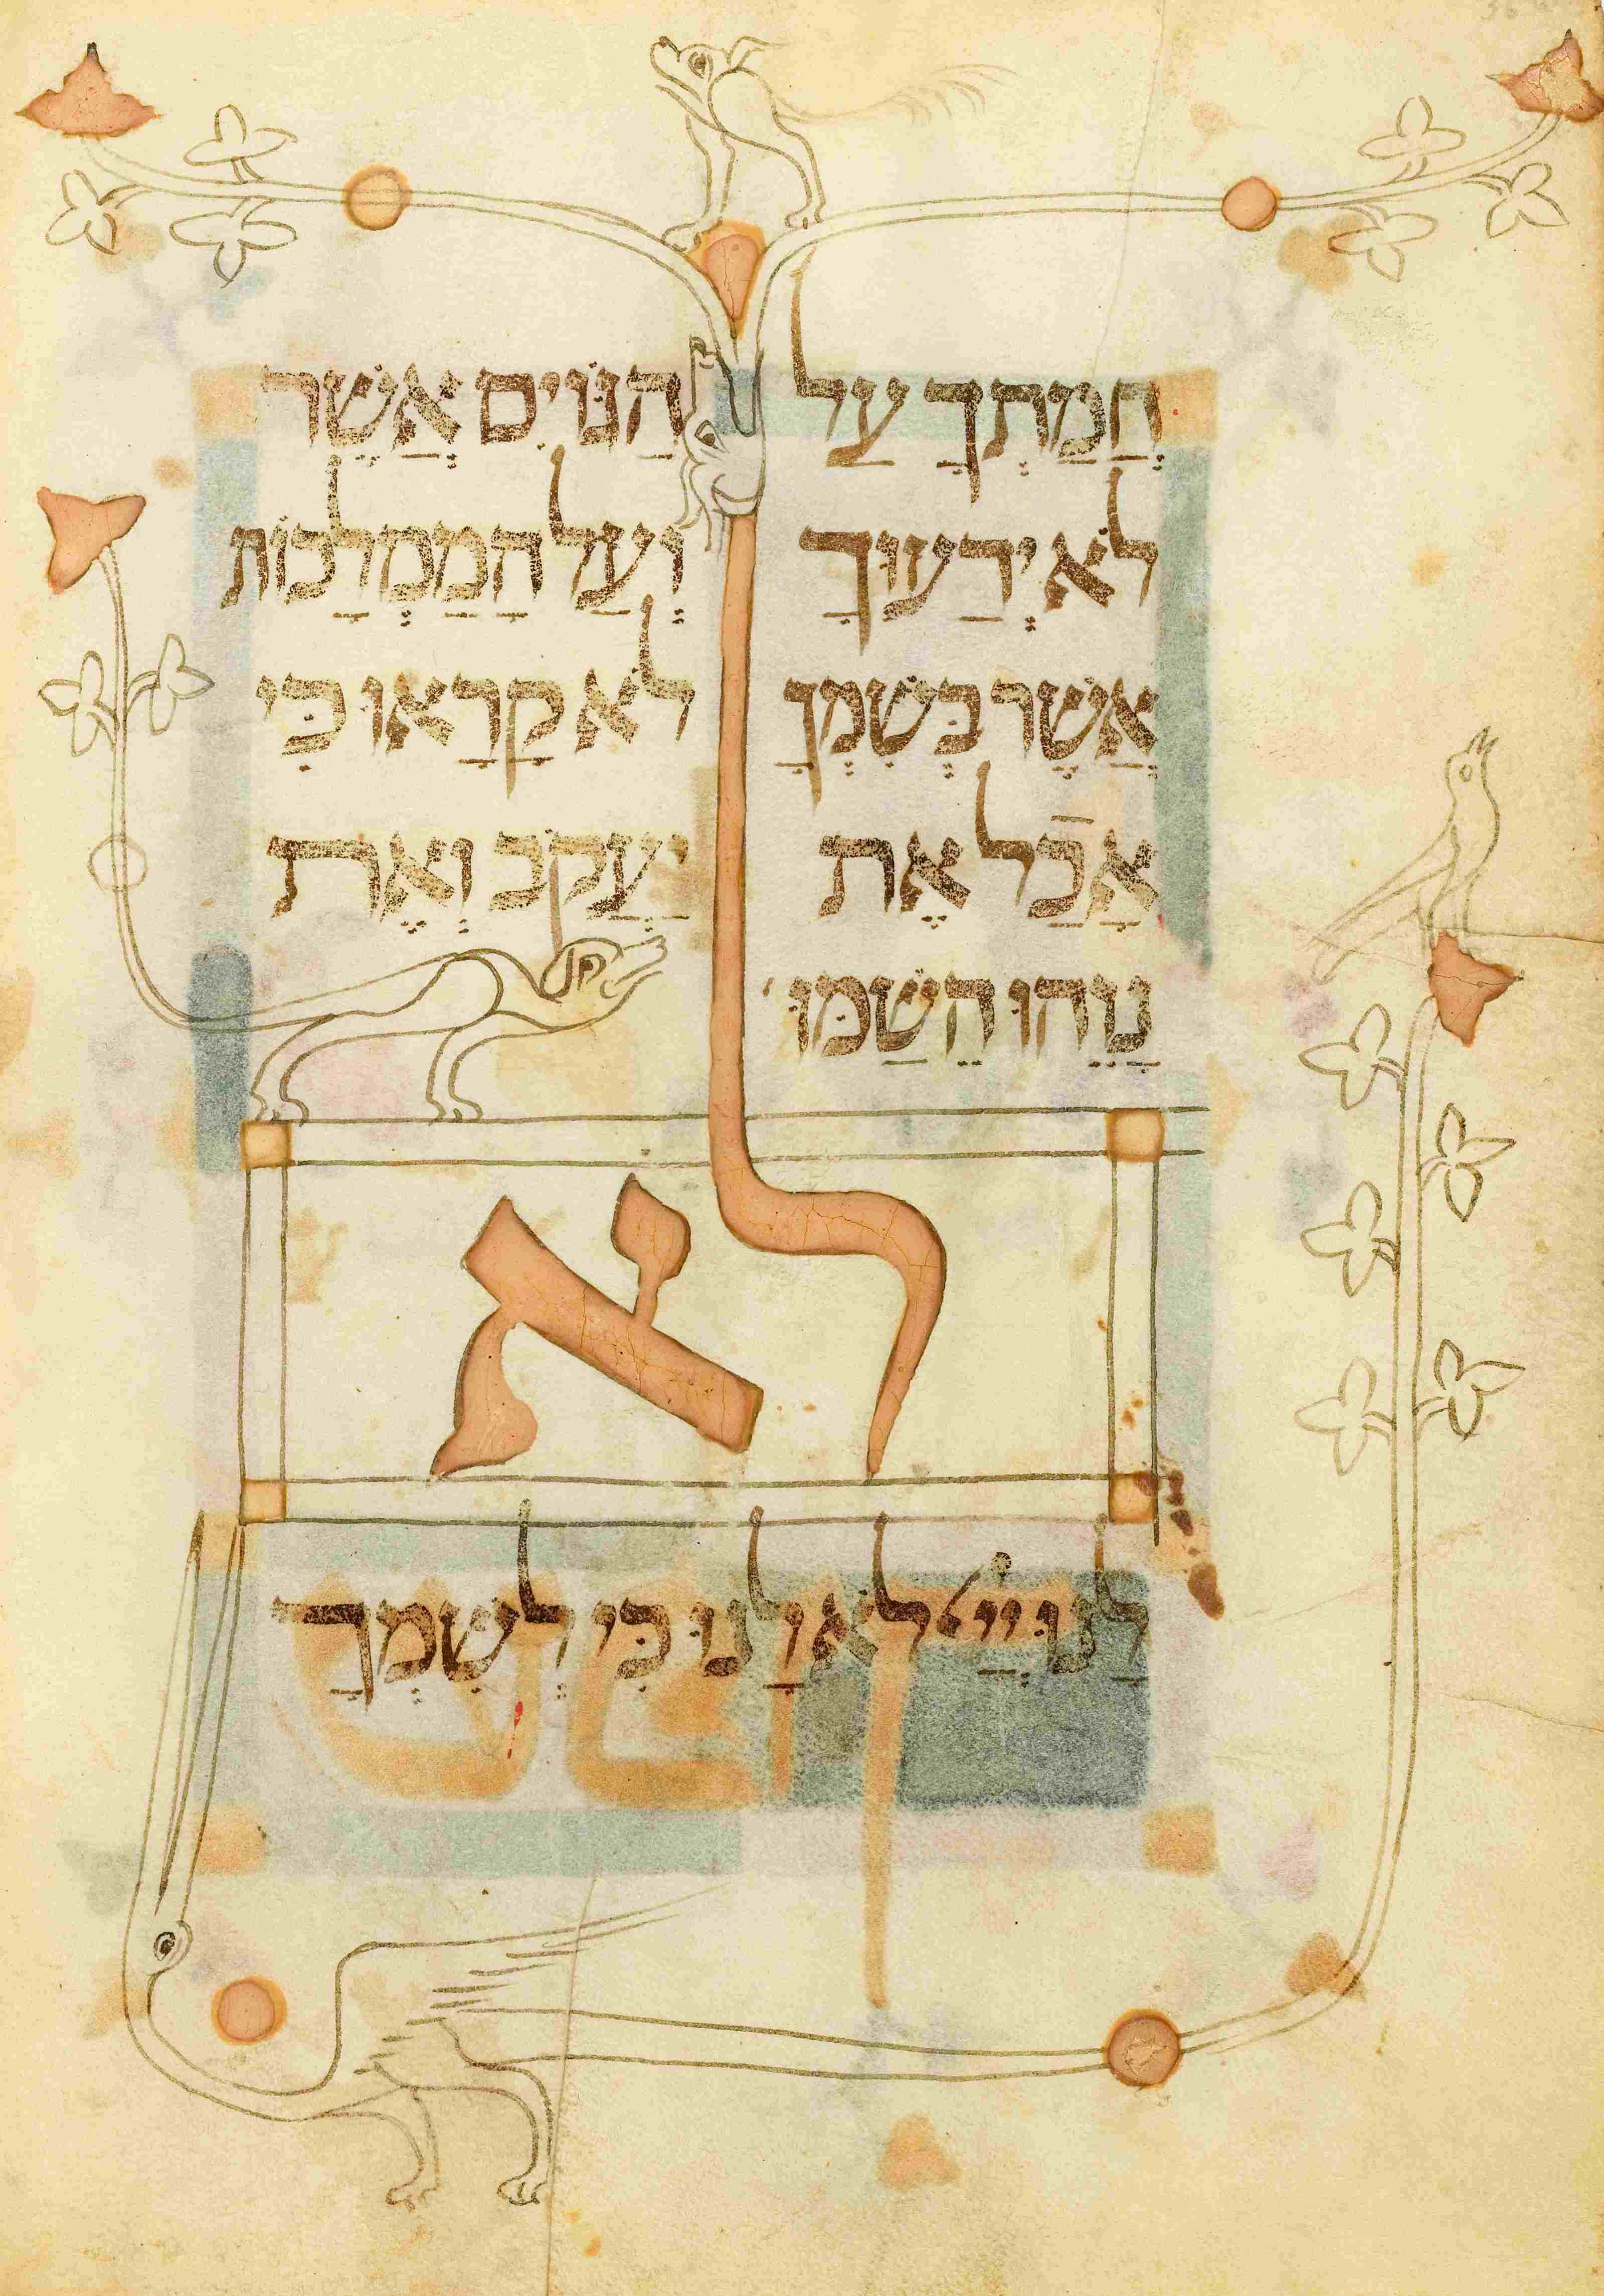 חֲמָתְךָ עַל הַגּוֹיִם אֲשֶׁר
לֹא יְדָעוּךָ וְעַל הַמַּמְלָכוֹת
אֲשֶׁר בְּשִׁמְךָ לֹא קָרָאוּ כִּי
אָכַל אֶת יַעֲקֹב וְאֶת
נָוֵהוּ הֵשַׁמּוּ
לא
לָנוּ יְיָ לֹא לָנוּ כִּי לְשִׁמְךָ